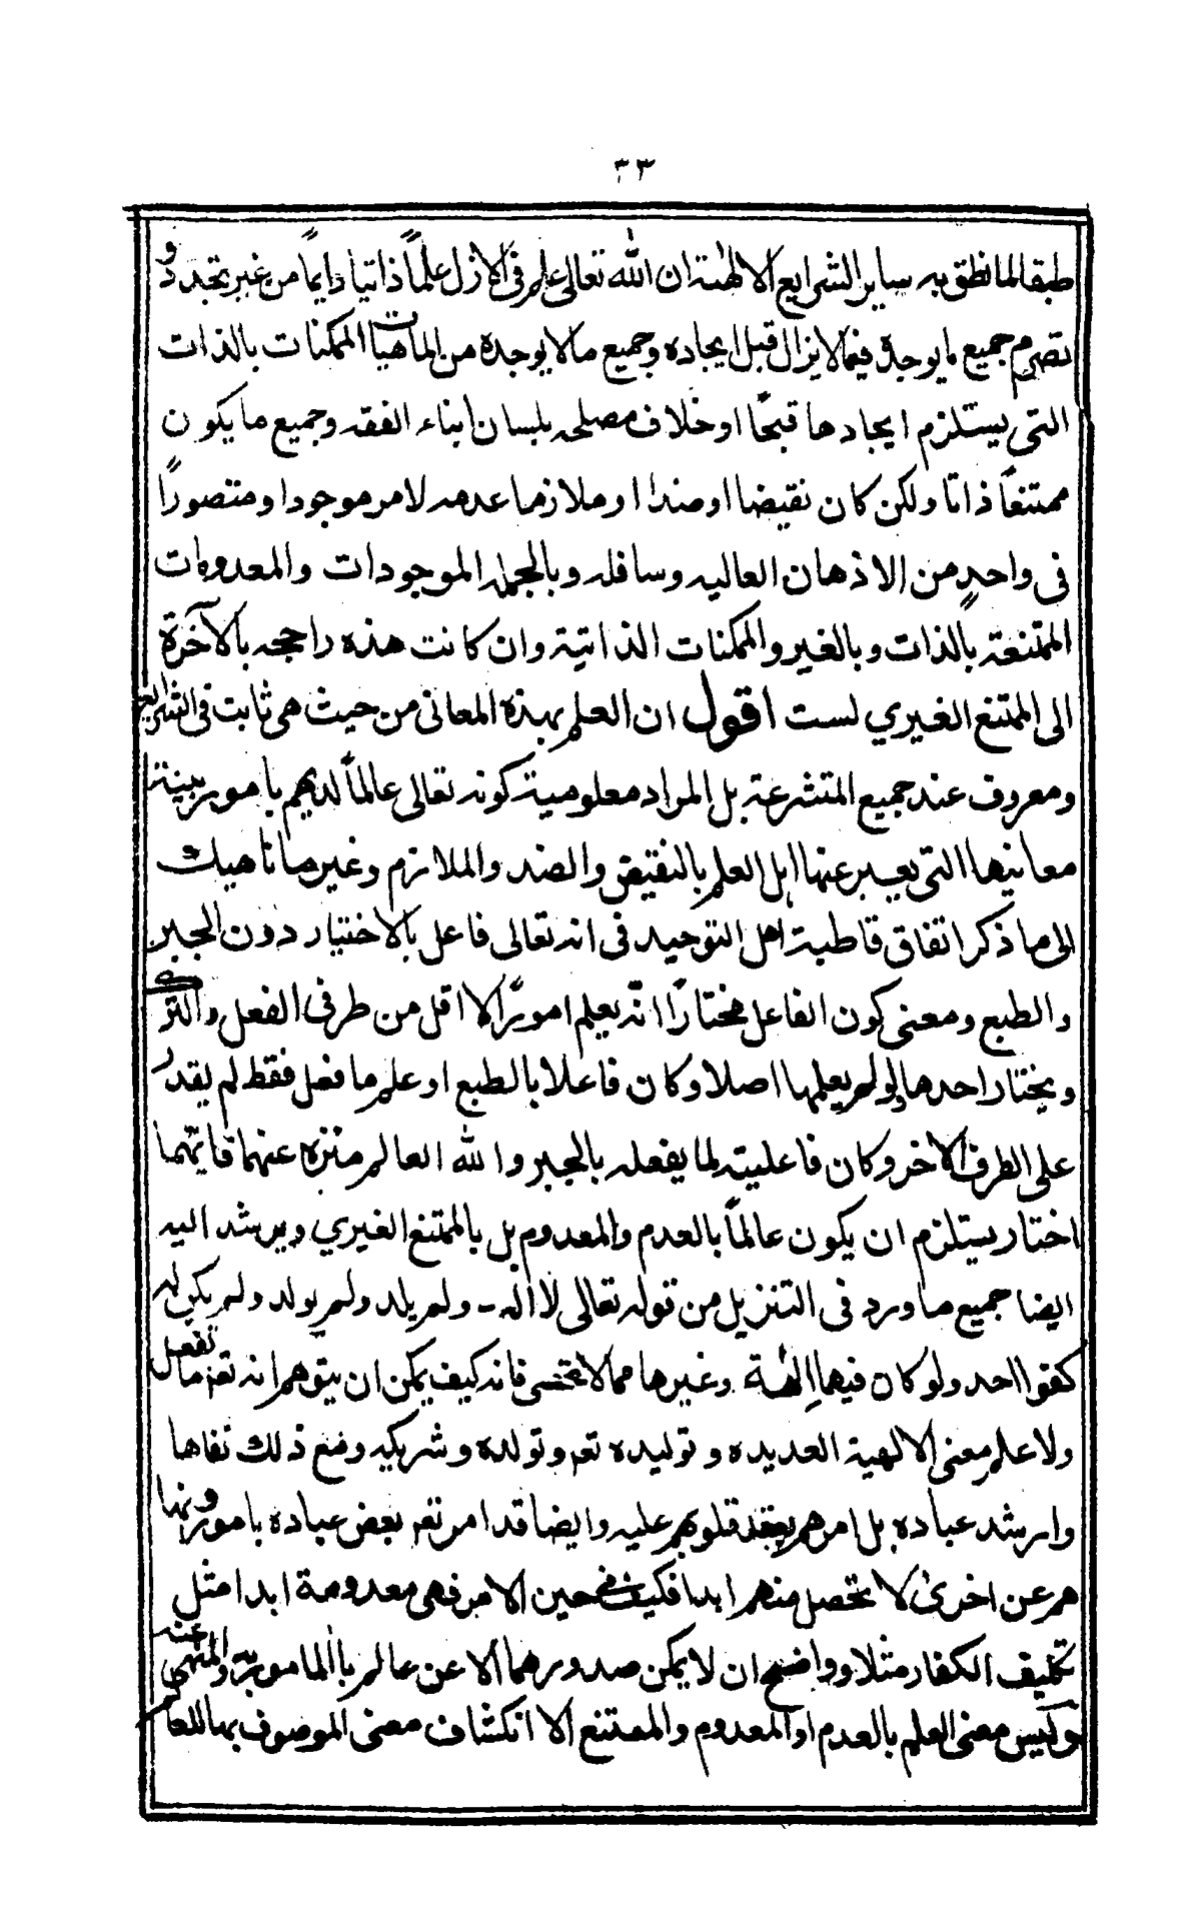 ٣٣
طبقا لما نطق به ساير الشرايع الالهية ان الله تعالى علم فى الازل علماً ذاتيا دايماً من غير تجدد و
تصرم جميع ما يوجده فيما لا يزال قبل ايجاده وجميع ما لا يوجده من الماهيات الممكنات بالذات
التى يستلزم ايجادها قبحًا او خلاف مصلحه بلسان ابناء الفقه وجميع ما يكون
ممتنعاً ذاتا ولكن كان نقيضا او ضدا او ملازما عدمه لامر موجودا ومتصوراً
فى واحدٍ من الاذهان العاليه وسافله وبالجمله الموجودات والمعدومات
الممتنعة بالذات وبالغير والممكنات الذاتية وان كانت هذه راجحه بالآخرة
الى الممتنع الغيري لست اقول ان العلم بهذه المعانى من حيث هى ثابت فى الشرايع
ومعروف عند جميع المتشرعة بل المراد معلومية كونه تعالى عالماً لديهم بامور بينة
معانيها التى يعبر عنها اهل العلم بالنقيض والضد والملازم وغيرها ناهيك
الى ما ذكر اتفاق قاطبة اهل التوحيد فى انه تعالى فاعل بالاختيار دون الجبر
والطبع ومعنى كون الفاعل مختاراً انّه يعلم اموراً لا اقل من طرفى الفعل والترك
ويختار احدها ولو لم يعلمها اصلا وكان فاعلا بالطبع او علم ما فعل فقط لم يقدر
على الطرف الاخر وكان فاعليته لما يفعله بالجبر والله العالم منزه عنهما فايّهما
اختار يستلزم ان يكون عالماً بالعدم والمعدوم بل بالممتنع الغيري ويرشد اليه
ايضا جميع ما ورد فى التنزيل من قوله تعالى لا اله - ولم يلد ولم يولد ولم يكن له
كفوا احد ولو كان فيهما الهة وغيرها مما لا تحصى فانه كيف يمكن ان يتوهم انه تعم ما تفعل
ولا علم معنى الالهية العديده وتوليده تعم وتولده وشريكيه ومع ذلك نفاها
وارشد عباده بل امرهم بعقد قلوبهم عليه وايضا قد امر تعم بعض عباده بامور ونها
هم عن اخرى لا تحصل منهم ابدا فكيف فى حين الامر فهى معدومة ابدا مثل
تكليف الكفار مثلا وواضح ان لا يمكن صدورهما الا عن عالم بالمامور به والمنهى عنه
وليس معنى العلم بالعدم او المعدوم والممتنع الا انكشاف معنى الموصوف بها للعالم